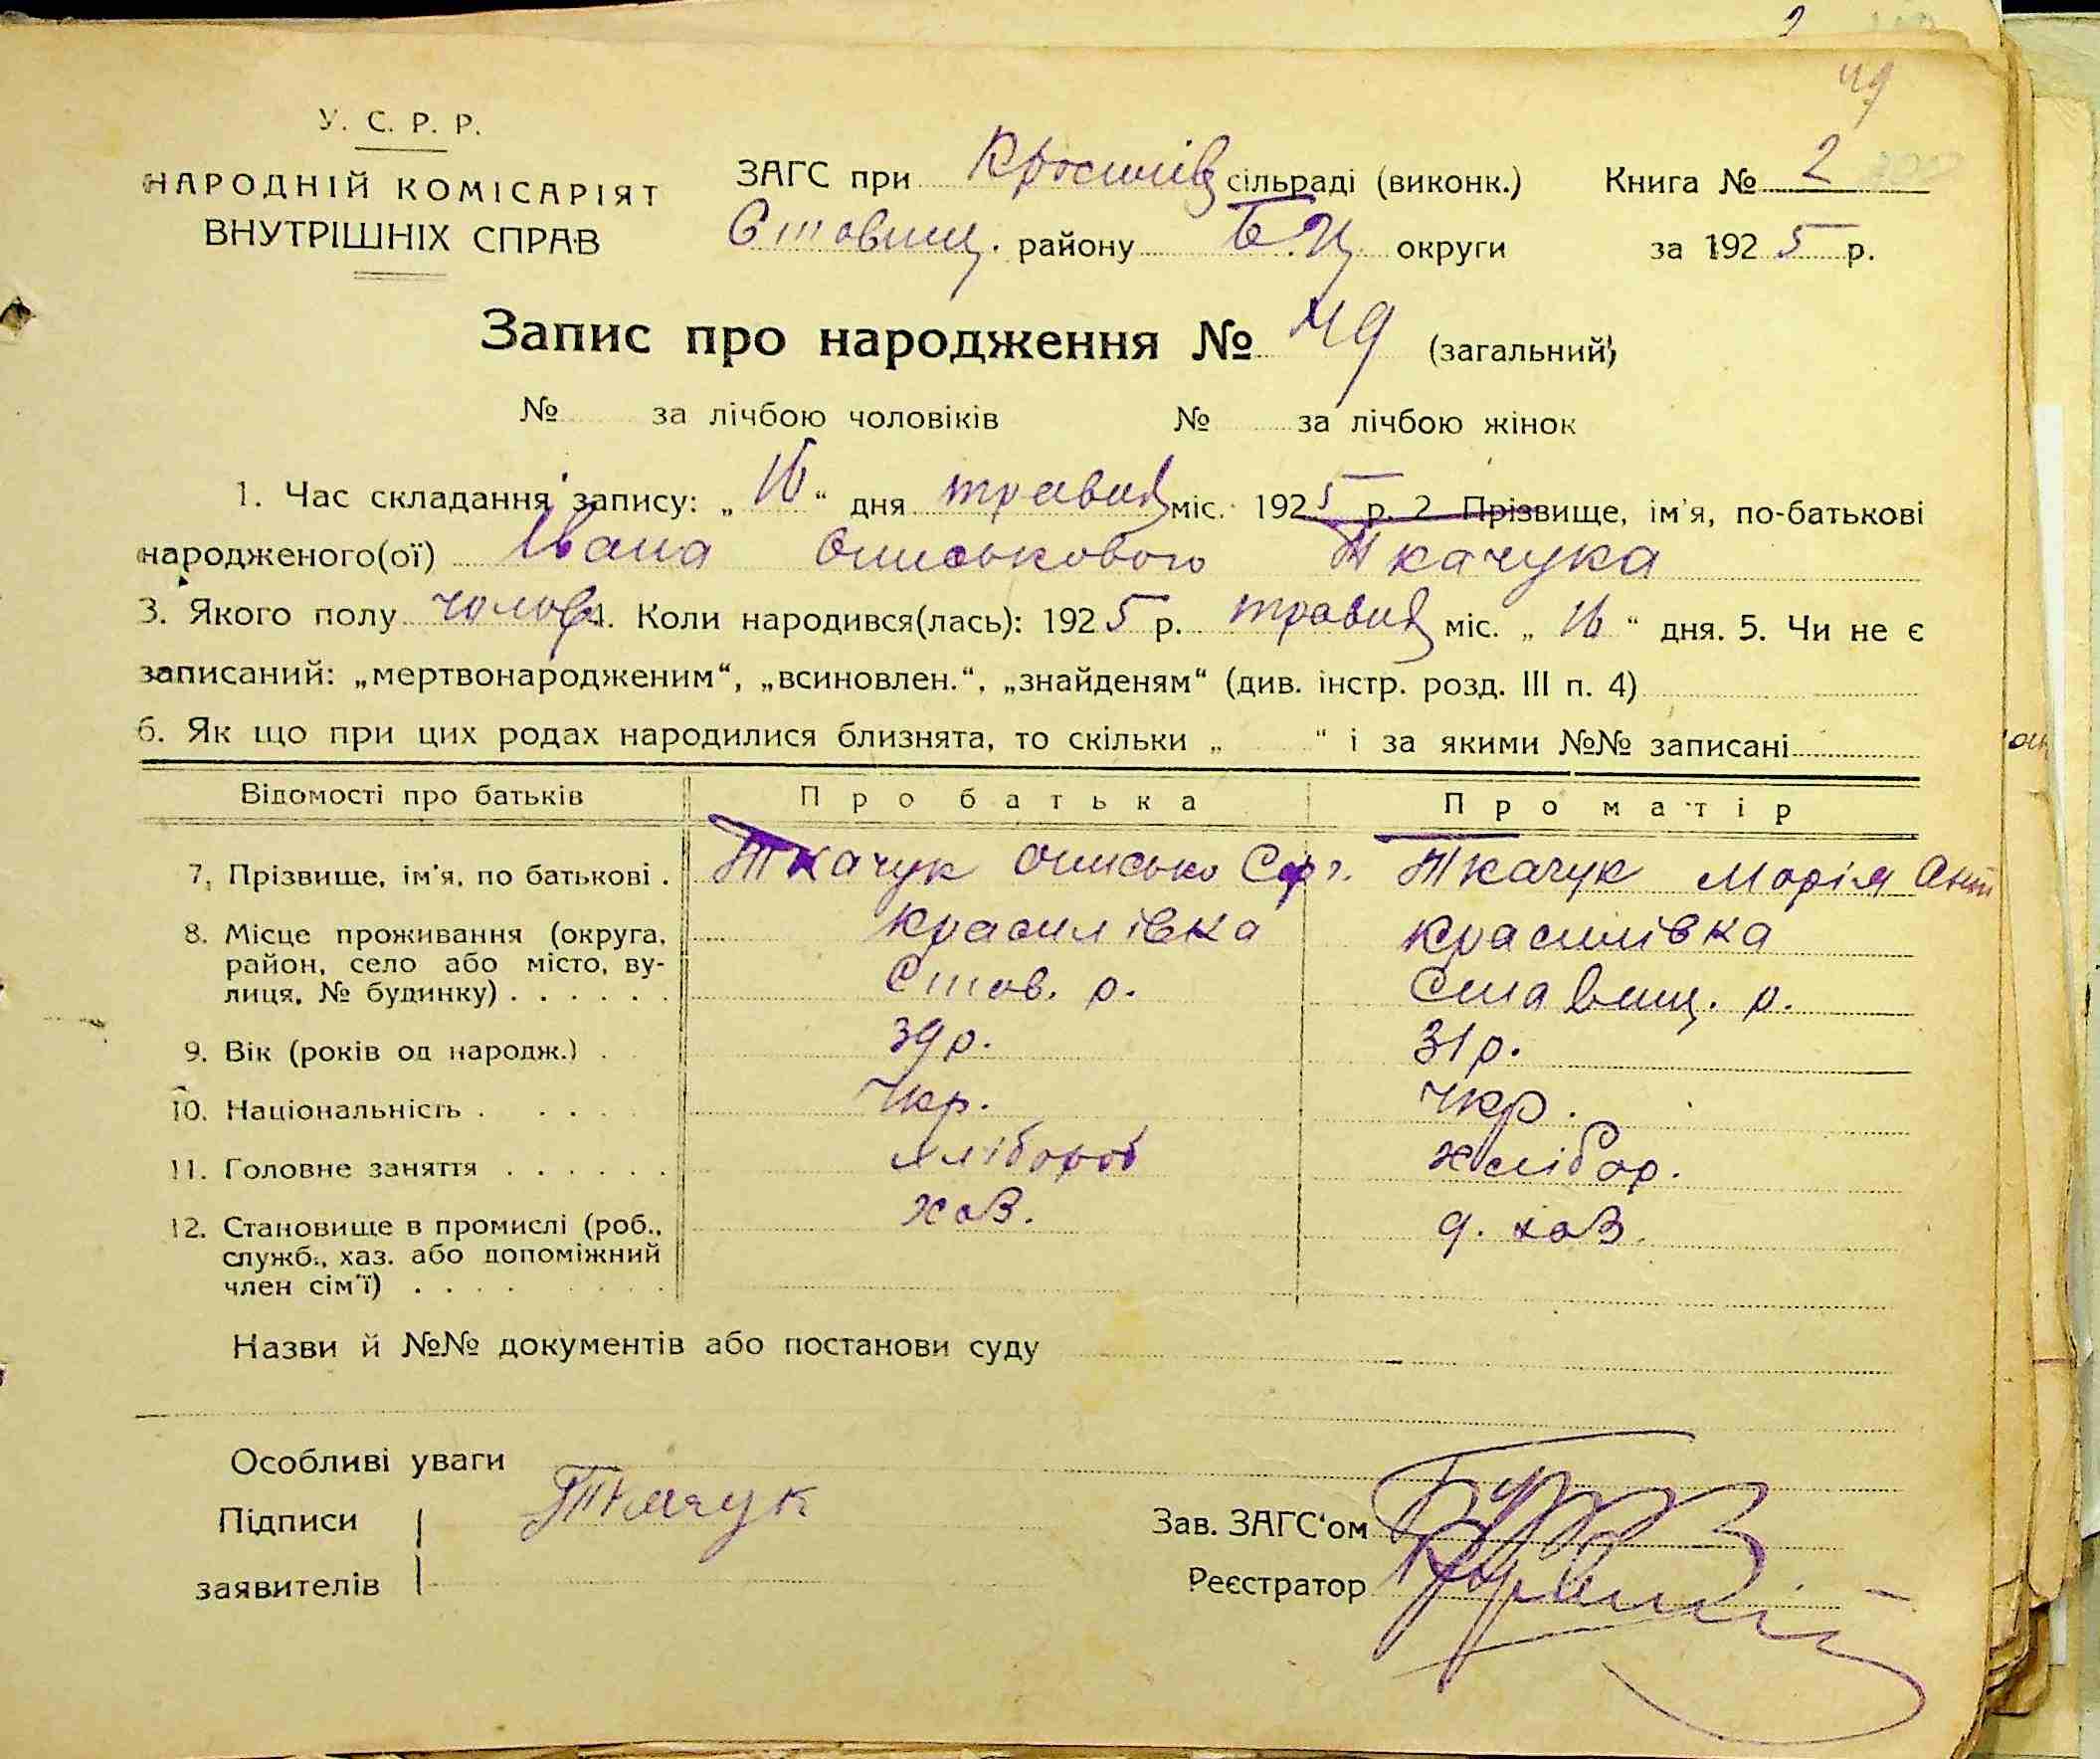 49
У. С. Р. Р.
НАРОДНІЙ КОМІСАРІЯТ
ВНУТРІШНІХ СПРАВ
ЗАГС при Красилів сільраді (виконк.) Книга № 2
Ставищ. району Б.Ц. округи за 1925 р.
Запис про народження № 49 (загальний)
№ за лічбою чоловіків № за лічбою жінок
1. Час складання запису: „16“ дня травня міс. 1925 р. 2 Прізвище, ім'я, по-батькові
народженого(ої) Івана Ониськового Ткачука
3. Якого полу чолов 4. Коли народився(лась): 1925 р. травня міс. „16“ дня. 5. Чи не є
записаний: „мертвонародженим“, „всиновлен.“, „знайденям“ (див. інстр. розд. III п. 4)
6. Як що при цих родах народилися близнята, то скільки „ “ і за якими №№ записані
Відомості про батьків Про батька Про матір
7. Прізвище, ім'я, по батькові . Ткачук Онисько Серг. Ткачук Марія Ант
8. Місце проживання (округа, Красилівка Красилівка
район, село або місто, ву- Став. р. Ставищ. р.
лиця, № будинку) . . . . . .
9. Вік (років од народж.) . 39 р. 31 р.
10. Національність . . . . Укр. Укр.
11. Головне заняття . . . . . . хлібороб хлібор.
12. Становище в промислі (роб., хаз. д. хаз.
служб., хаз. або допоміжний
член сім'ї) . . . .
Назви й №№ документів або постанови суду
Особливі уваги
Підписи Ткачук Зав. ЗАГС'ом
заявителів Реєстратор